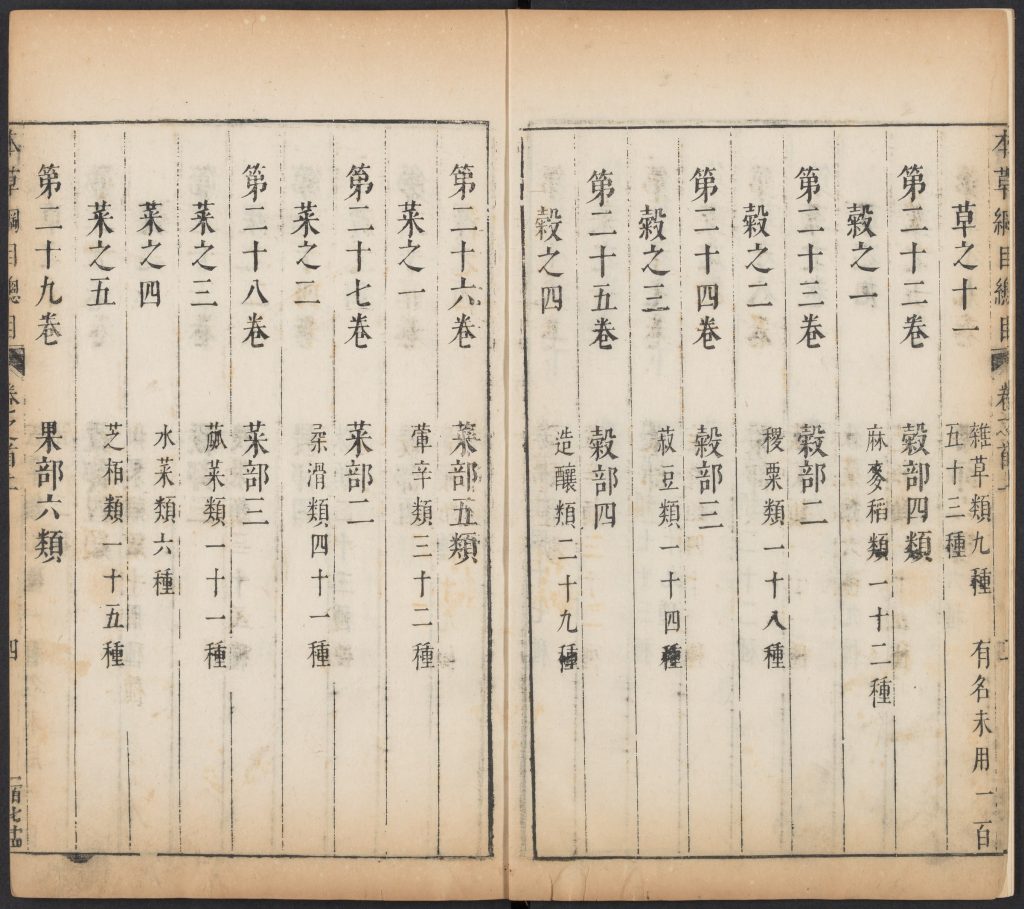 本草綱目總目
卷之首二
草之十一
雜草類九種 有名未用一百
五十三種
第二十二卷 穀部四類
穀之一 麻麥稻類一十二種
第二十三卷 穀部二
穀之二 稷粟類一十八種
第二十四卷 穀部三
穀之三 菽豆類一十四種
第二十五卷 穀部四
穀之四 造釀類二十九種
第二十六卷 菜部五類
菜之一 葷辛類三十二種
第二十七卷 菜部二
菜之二 柔滑類四十一種
第二十八卷 菜部三
菜之三 蓏菜類一十一種
菜之四 水菜類六種
菜之五 芝栭類一十五種
第二十九卷 果部六類
本草綱目總目 卷之首二 四